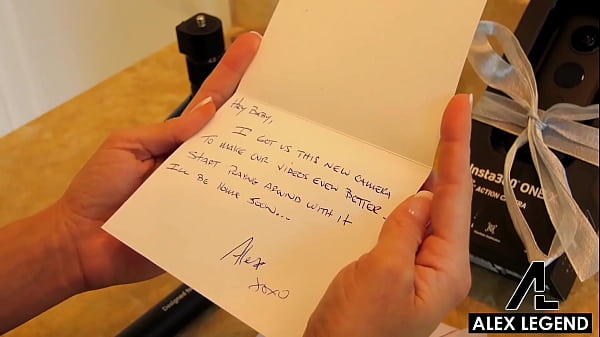 ALEX LEGEND
Hey Baby,
I got us this new camera
to make our videos even better.
Start playing around with it
I'll be home soon...
Alex
xoxo
Insta360 ONE X
ACTION CAMERA
Designed
AL
ALEX LEGEND